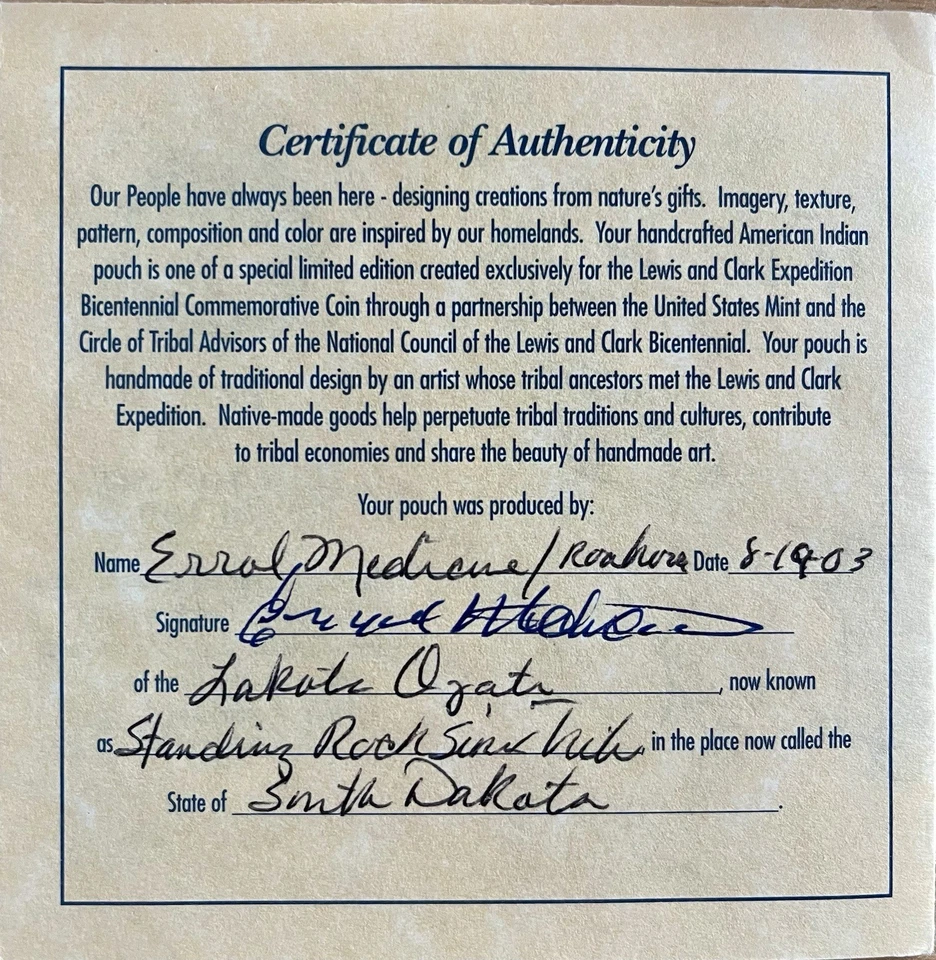 Certificate of Authenticity
Our People have always been here - designing creations from nature's gifts. Imagery, texture,
pattern, composition and color are inspired by our homelands. Your handcrafted American Indian
pouch is one of a special limited edition created exclusively for the Lewis and Clark Expedition
Bicentennial Commemorative Coin through a partnership between the United States Mint and the
Circle of Tribal Advisors of the National Council of the Lewis and Clark Bicentennial. Your pouch is
handmade of traditional design by an artist whose tribal ancestors met the Lewis and Clark
Expedition. Native-made goods help perpetuate tribal traditions and cultures, contribute
to tribal economies and share the beauty of handmade art.
Your pouch was produced by:
Name Errol Medicine / Date
Signature
of the Lakota Oyate, now known
as Standing Rock in the place now called the
State of South Dakota.